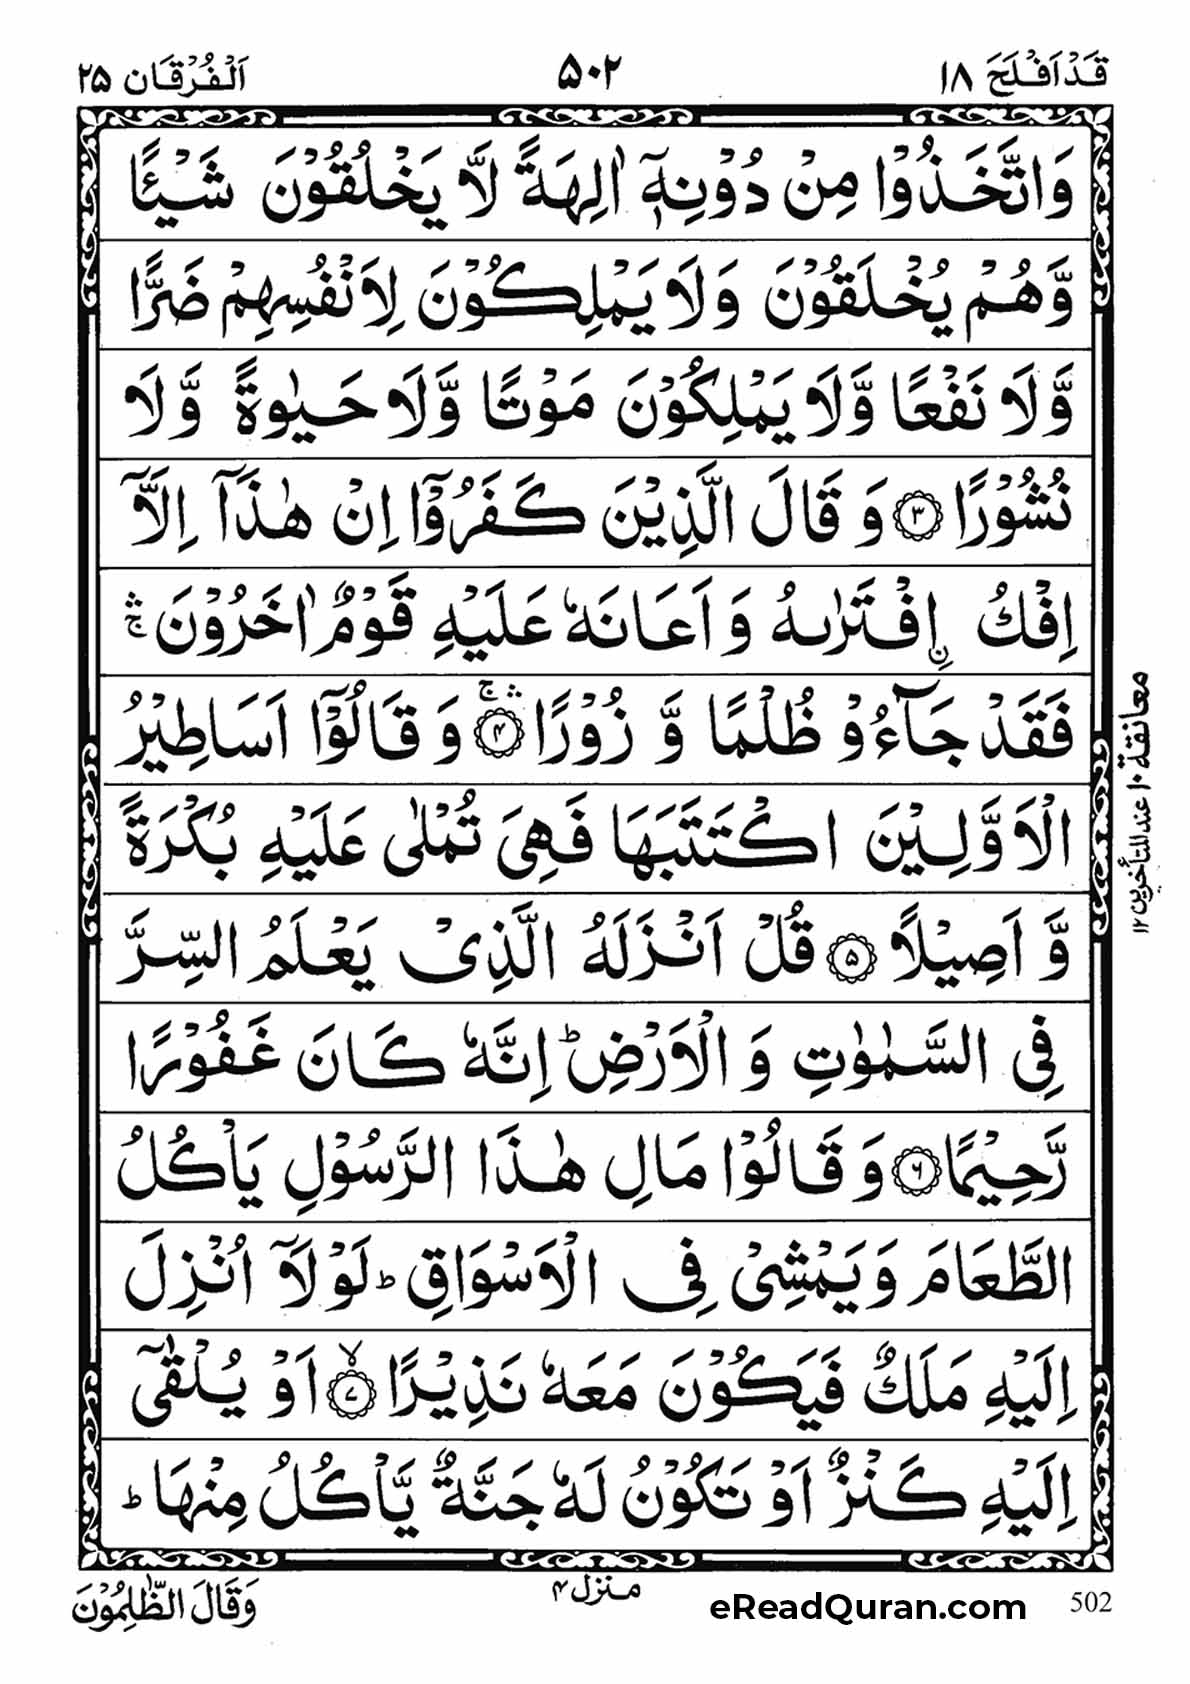 قَدْ اَفْلَحَ ١٨
٥٠٢
اَلْفُرْقَان ٢٥
وَاتَّخَذُوْا مِنْ دُوْنِهٖۤ اٰلِهَةً لَّا يَخْلُقُوْنَ شَيْـًٔا
وَّهُمْ يُخْلَقُوْنَ وَلَا يَمْلِكُوْنَ لِاَنْفُسِهِمْ ضَرًّا
وَّلَا نَفْعًا وَّلَا يَمْلِكُوْنَ مَوْتًا وَّلَا حَيٰوةً وَّلَا
نُشُوْرًا ۝٣ وَ قَالَ الَّذِيْنَ كَفَرُوْۤا اِنْ هٰذَاۤ اِلَّاۤ
اِفْكُ اِ۟فْتَرٰىهُ وَ اَعَانَهٗ عَلَيْهِ قَوْمٌ اٰخَرُوْنَ ۛۚ
فَقَدْ جَآءُوْ ظُلْمًا وَّ زُوْرًا ۝٤ ۛۚ وَ قَالُوْۤا اَسَاطِيْرُ
الْاَوَّلِيْنَ اكْتَتَبَهَا فَهِيَ تُمْلٰى عَلَيْهِ بُكْرَةً
وَّ اَصِيْلًا ۝٥ قُلْ اَنْزَلَهُ الَّذِيْ يَعْلَمُ السِّرَّ
فِي السَّمٰوٰتِ وَ الْاَرْضِ ؕ اِنَّهٗ كَانَ غَفُوْرًا
رَّحِيْمًا ۝٦ وَ قَالُوْا مَالِ هٰذَا الرَّسُوْلِ يَاْكُلُ
الطَّعَامَ وَيَمْشِيْ فِي الْاَسْوَاقِ ؕ لَوْلَاۤ اُنْزِلَ
اِلَيْهِ مَلَكٌ فَيَكُوْنَ مَعَهٗ نَذِيْرًا ۝٧ ۙ اَوْ يُلْقٰۤى
اِلَيْهِ كَنْزٌ اَوْ تَكُوْنُ لَهٗ جَنَّةٌ يَّاْكُلُ مِنْهَا ؕ
معانقة ١٠ عند المتأخرين ١٢
وَقَالَ الظّٰلِمُوْنَ
منزل ٤
eReadQuran.com
502